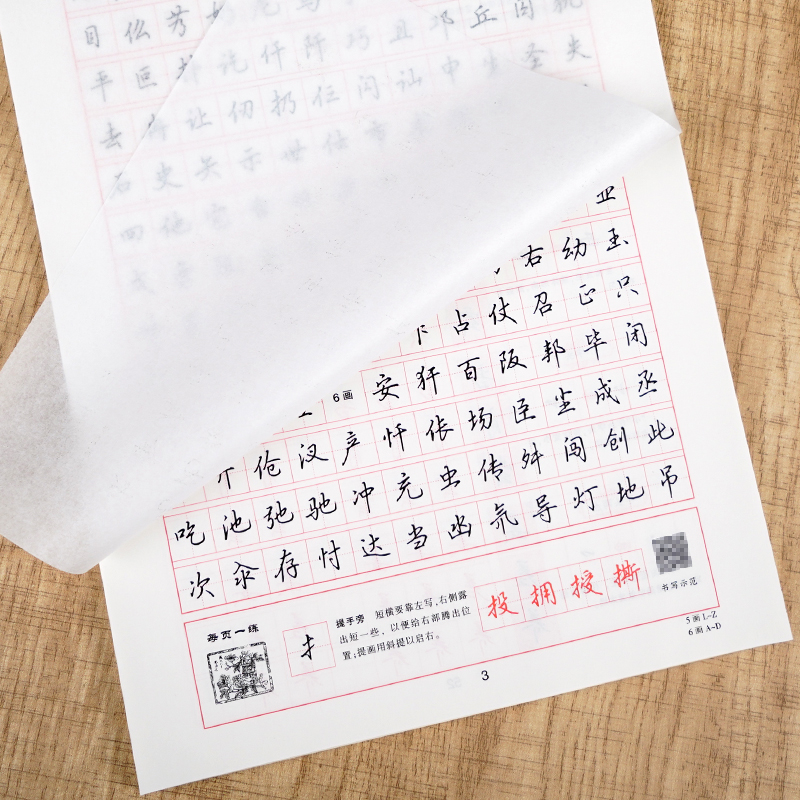 目仫芳
平叵
去 让仞扔仨闪讪中生圣失
石史矢示世仕市
四他它
业
右幼玉
占仗召正只
6画 安犴百阪邦毕闭
伧汊产忏伥场臣尘成丞
吃池弛驰冲充虫传舛闯创此
次汆存忖达当凼氘导灯地吊
每页一练
提手旁 短横要靠左写,右侧露
出短一些,以便给右部腾出位
置;提画用斜提以启右。
扌
投拥授撕
书写示范
5画L~Z
6画A~D
3